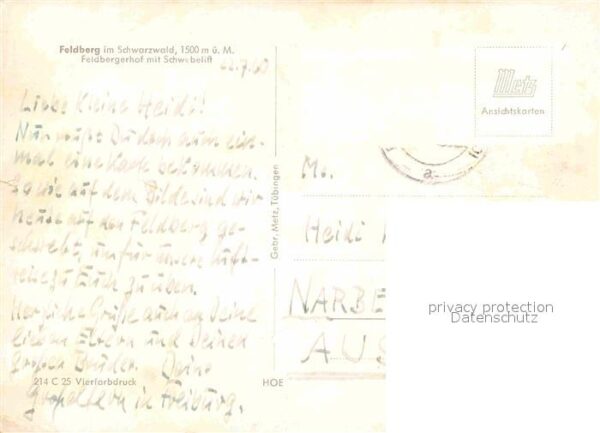 Feldberg im Schwarzwald, 1500 m ü. M.
Feldbergerhof mit Schwebelift
22.7.60
Liebe kleine Heidi!
Nun mußt Du doch auch ein-
mal eine Karte bekommen.
So wie auf dem Bilde sind wir
heute auf den Feldberg ge-
schwebt, um für unsere Luft-
reise zu Euch zu üben.
Herzliche Grüße auch an Deine
lieben Eltern und Deinen
großen Bruder. Deine
Großeltern in Freiburg.
214 C 25 Vierfarbdruck
HOE
Gebr. Metz, Tübingen
Metz
Ansichtskarten
Heidi
NARBE
AUS
privacy protection
Datenschutz